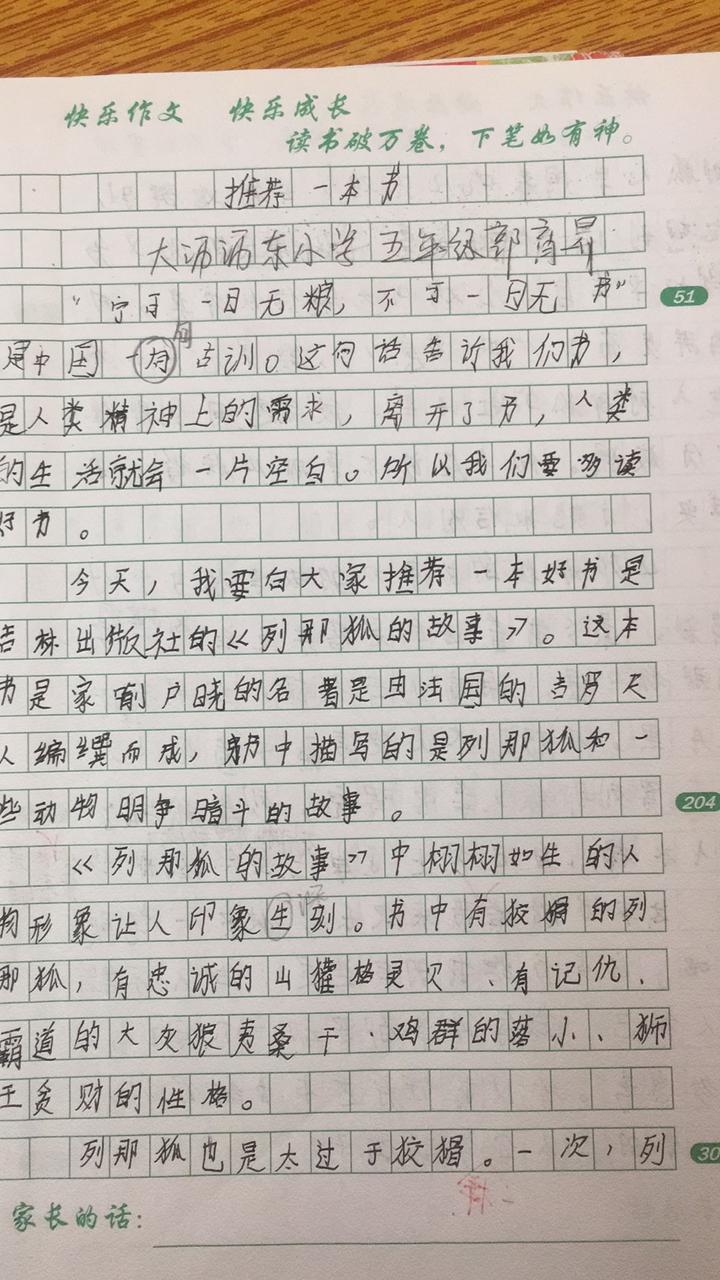 快乐作文 快乐成长
读书破万卷，下笔如有神。
推荐一本书
大沥沥东小学 五年级 郭高昇
“宁可一日无粮，不可一日无书”
51
是中国一句古训。这句话告诉我们书，
是人类精神上的需求，离开了书，人类
的生活就会一片空白。所以我们要多读
好书。
今天，我要白大家推荐一本好书是
吉林出版社的《列那狐的故事》。这本
书是家喻户晓的名著是由法国的吉罗夫
人编缀而成，书中描写的是列那狐和一
些动物明争暗斗的故事。
204
《列那狐的故事》中栩栩如生的人
物形象让人印象生刻。书中有狡猾的列
那狐，有忠诚的山獾格灵贝、有记仇、
霸道的大灰狼夷桑干、鸡群的落小、狮
王贪财的性格。
列那狐也是太过于狡猾。一次，列
30
家长的话：